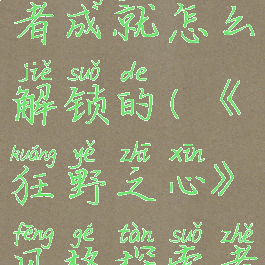 者成就怎么
jiě suǒ de
解锁的(《
kuáng yě zhī xīn
狂野之心》
fēng gé tàn suǒ zhě
风格探索者